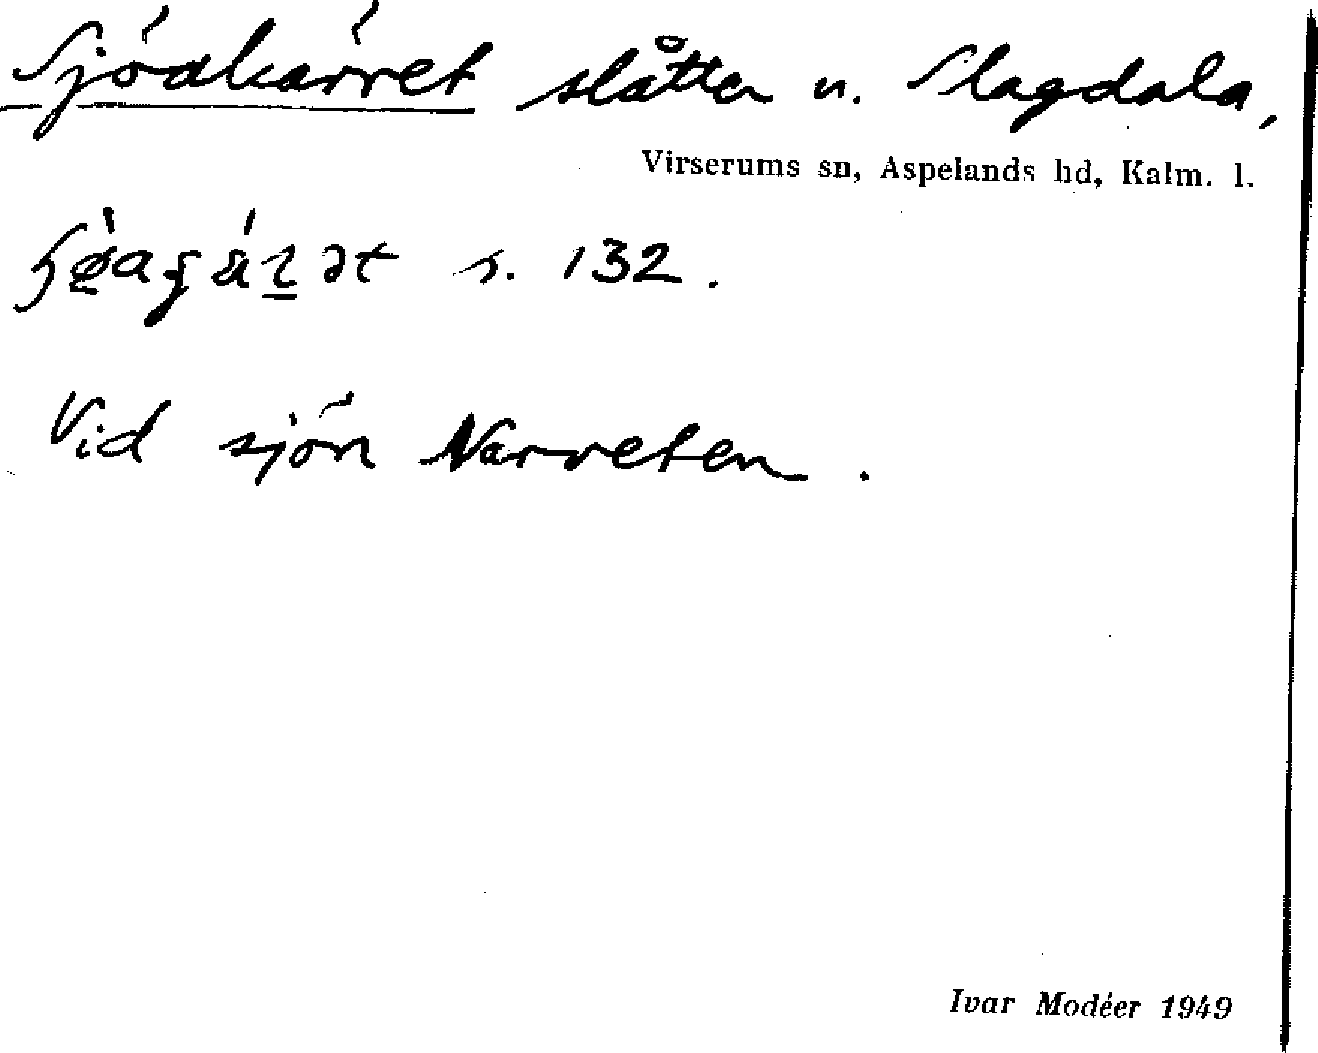 Sjöakärret slåtter u. Slagdala,
Virserums sn, Aspelands hd, Kalm. l.
s. 132.
Vid sjön Narreten.
Ivar Modéer 1949